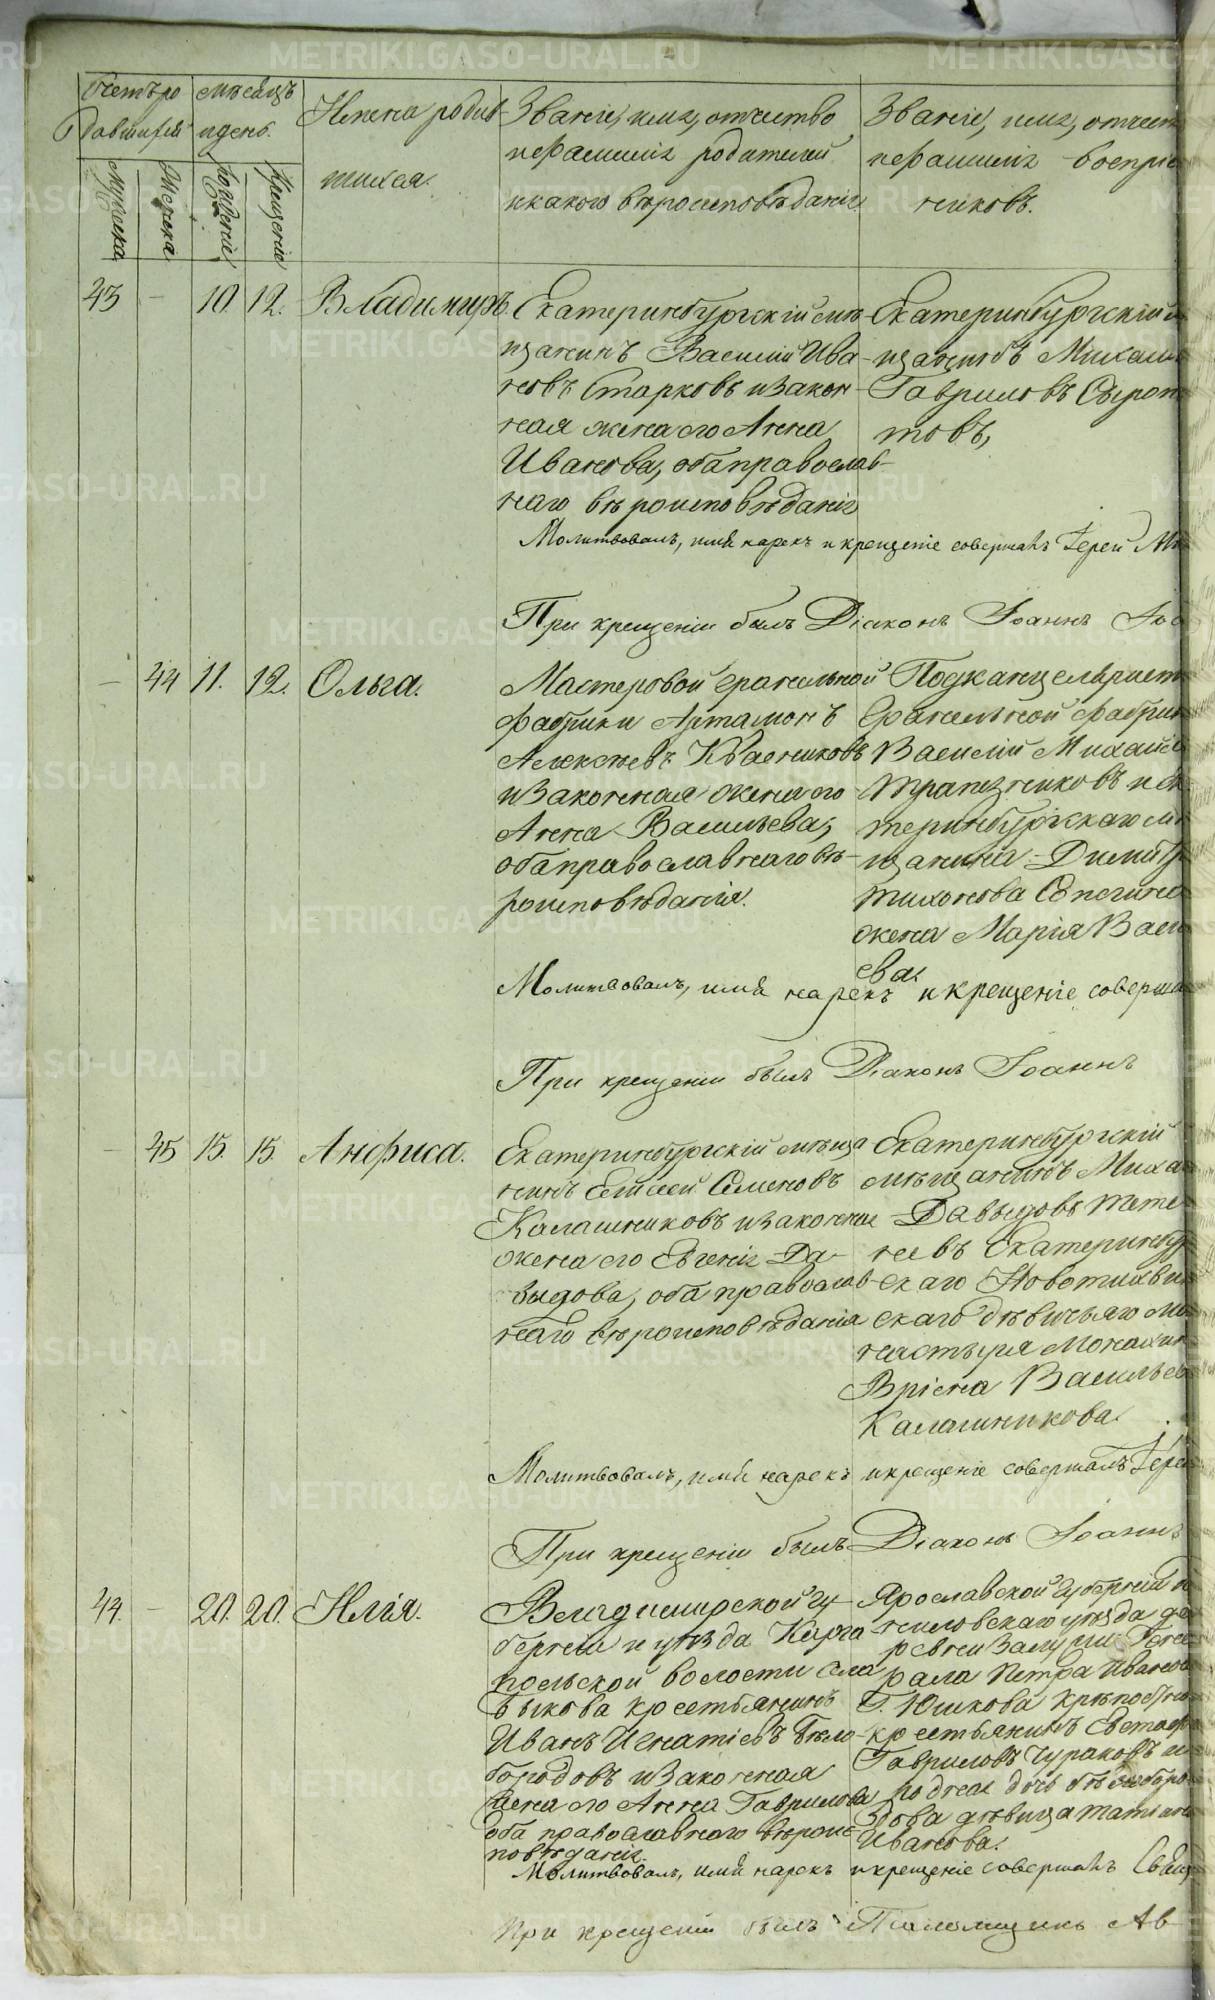 METRIKI.GASO-URAL.RU
Счетъ ро
дившихся
Мѣсяцъ
и день.
Мужеска
Женска
Рожденія
Крещенія
Имена родив
шихся.
Званіе, имя, отчество
и фамилія родителей
и какого вѣроисповѣданія
Званіе, имя, отчест
и фамилія воспріе
никовъ.
43 — 10. 12. Владимиръ.
Екатеринбургскій мѣ-
щанинъ Василій Ива
новъ Старковъ и закон
ная жена его Анна
Иванова, оба православ-
наго вѣроисповѣданія
Екатеринбургскій м
щанинъ Михаил
Гавриловъ Сыроп
товъ,
Молитвовалъ, имя нарекъ и крещеніе совершалъ Іерей Ми
При крещеніи былъ Діаконъ Іоаннъ
— 44 11. 12. Ольга.
Мастеровой гранильной
фабрики Артамонъ
Алексѣевъ Квасниковъ
и законная жена его
Анна Васильева,
оба православнаго вѣ-
роисповѣданія.
Подканцеляристъ
Гранильной фабрик
Василій Михайл
Трапезниковъ и Ек
теринбургскаго мѣ
щанина Димитр
Тихонова
жена Марія Васил
ева.
Молитвовалъ, имя нарекъ и крещеніе соверша
При крещеніи былъ Діаконъ Іоаннъ
— 45 15. 15. Анфиса.
Екатеринбургскій мѣща
нинъ Елисей Семеновъ
Калашниковъ и законная
жена его Евгенія Да-
выдова, оба православ-
наго вѣроисповѣданія
Екатеринбургскій
мѣщанинъ Миха
Давыдовъ Тете
невъ Екатеринбур
скаго Новотихвин
скаго дѣвичьяго мо
настыря Монахин
Васильев
Калашникова.
Молитвовалъ, имя нарекъ и крещеніе совершалъ Іерей
При крещеніи былъ Діаконъ Іоаннъ
44. — 20. 20. Илія.
Владимирской гу-
берніи и уѣзда
польской волости села
Быкова крестьянинъ
Иванъ Игнатіевъ Бѣло-
бородовъ и законная
жена его Анна Гаврилова
оба православнаго вѣроис
повѣданія.
Ярославской губерніи
уѣзда де
ревни Гене
рала Петра Иванов
Г. Юшкова крѣпостно
крестьянинъ Евстаф
Гавриловъ Чураковъ и
родная дочь
дѣвица Татіан
Иванова.
Молитвовалъ, имя нарекъ и крещеніе совершалъ Свящ
При крещеніи былъ Ав